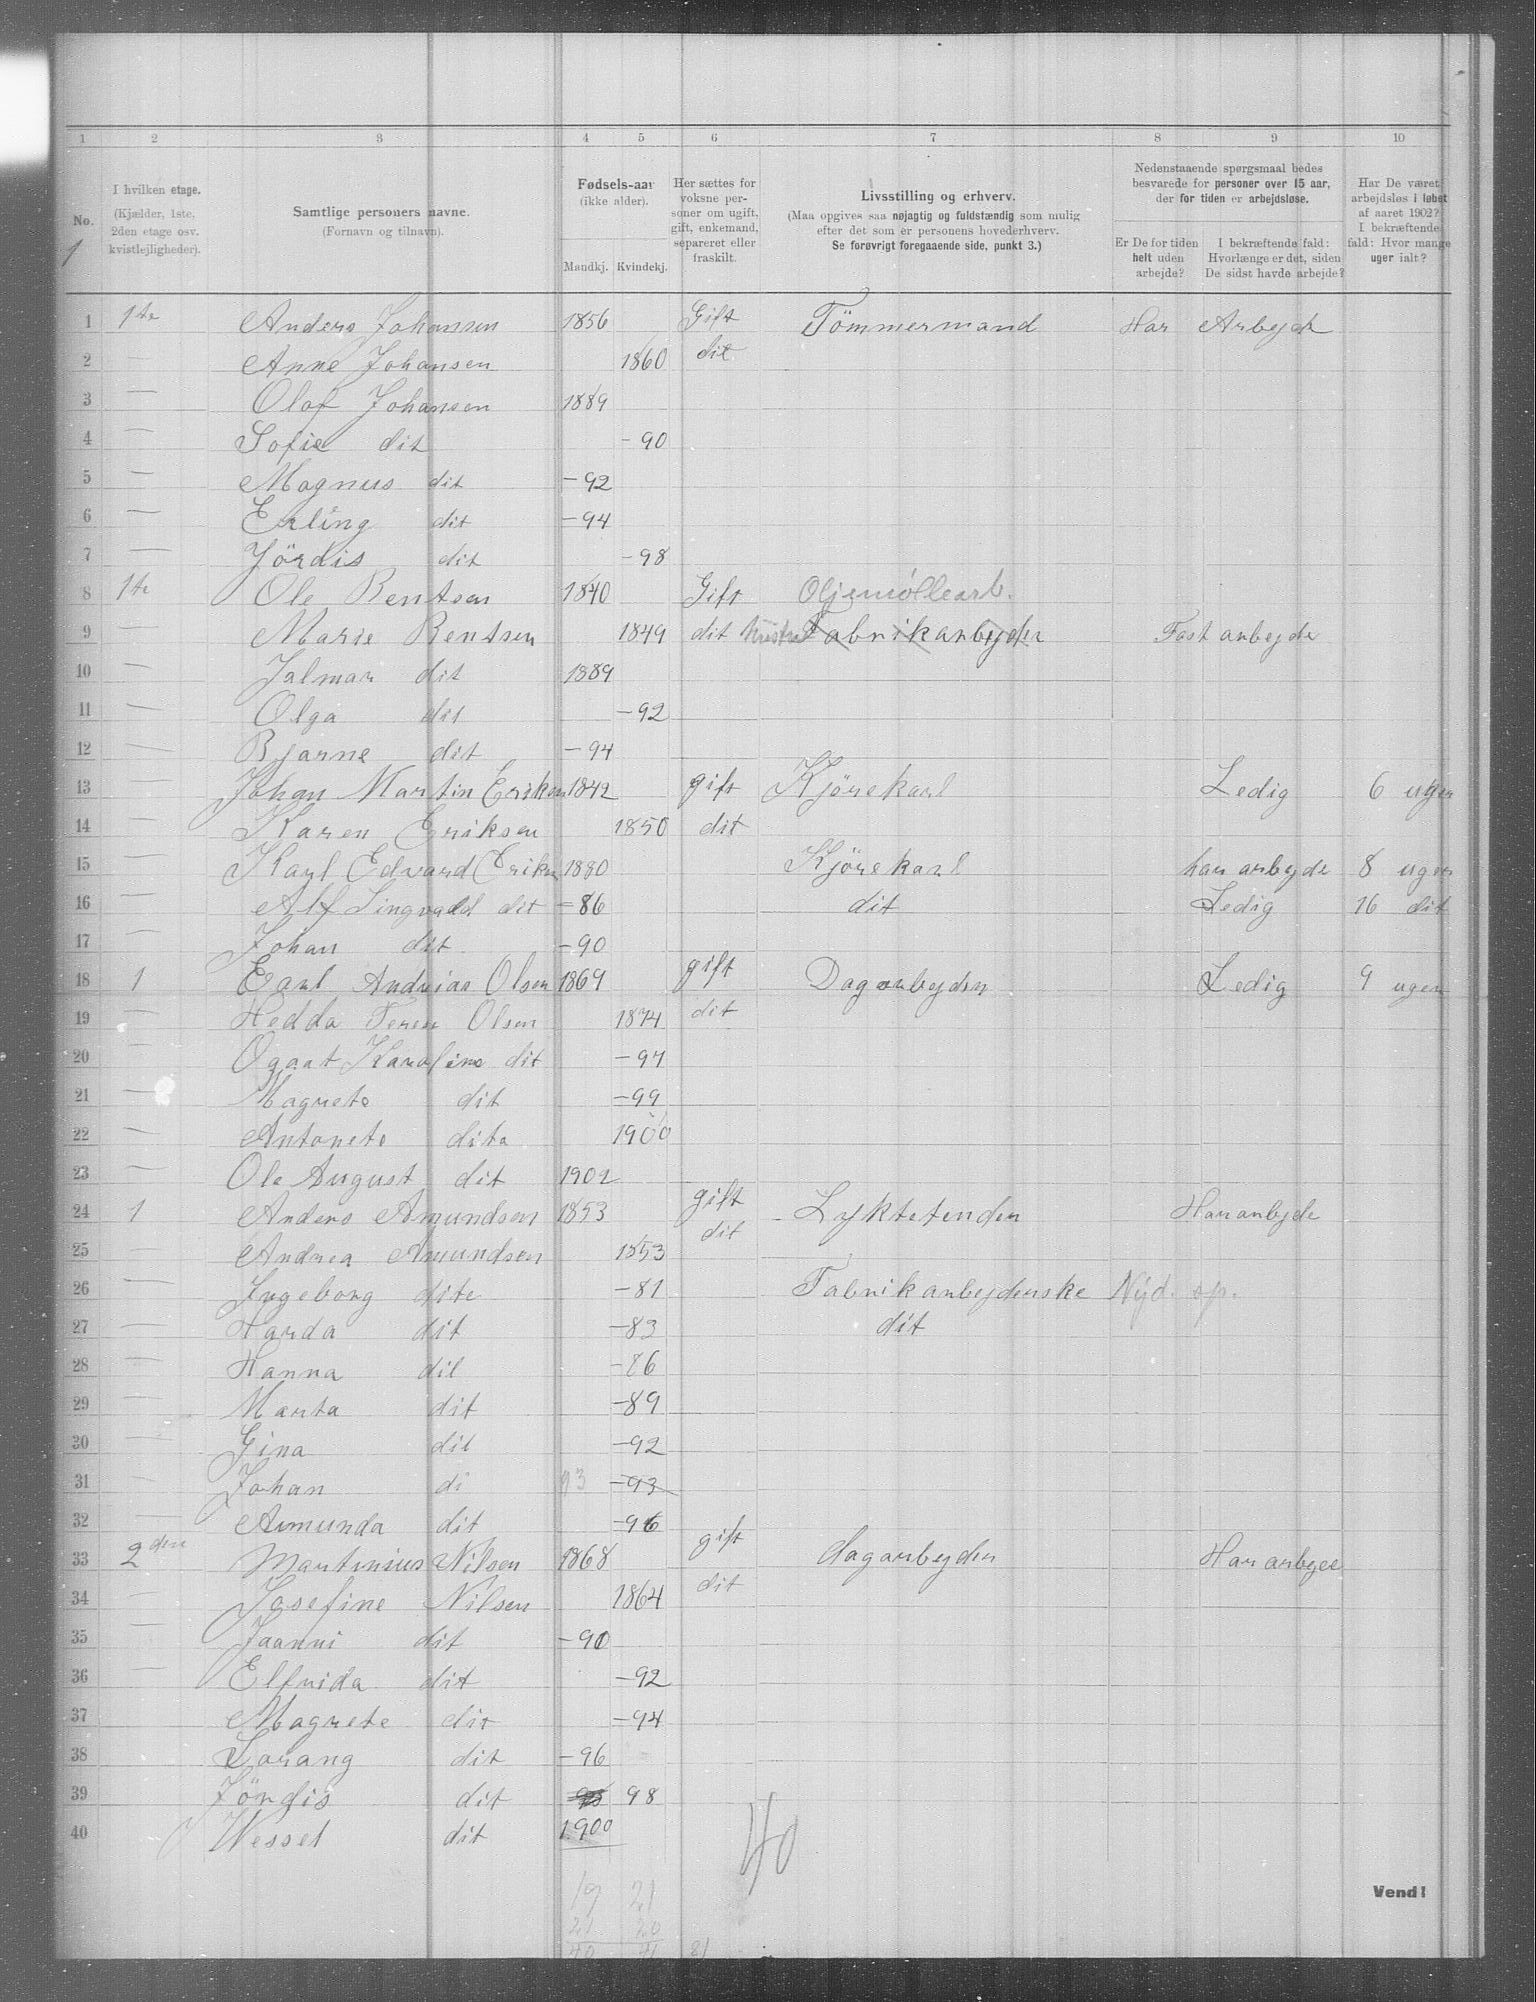 1 2 3 4 5 6 7 8 9 10
No. I hvilken etage. (Kjælder, 1ste, 2den etage osv. kvistlejligheder). Samtlige personers navne. (Fornavn og tilnavn). Fødsels-aar (ikke alder). Mandkj. Kvindekj. Her sættes for voksne personer om ugift, gift, enkemand, separeret eller fraskilt. Livsstilling og erhverv. (Maa opgives saa nøjagtig og fuldstændig som mulig efter det som er personens hovederhverv. Se forøvrigt foregaaende side, punkt 3.) Nedenstaaende spørgsmaal bedes besvarede for personer over 15 aar, der for tiden er arbejdsløse. Er De for tiden helt uden arbejde? I bekræftende fald: Hvorlænge er det, siden De sidst havde arbejde? Har De været arbejdsløs i løbet af aaret 1902? I bekræftende fald: Hvor mange uger ialt?
1
1 1te Anders Johansen 1856 Gift Tömmermand Har Arbejd
2 — Anne Johansen 1860 dit
3 — Olaf Johansen 1889
4 — Sofie dit -90
5 — Magnus dit -92
6 — Erling dit -94
7 — Jördis dit -98
8 1te Ole Bentsen 1840 Gift Oljemøllearb.
9 — Marie Bentsen 1849 dit Hustru Fabrikarbejder Fast arbejde
10 — Jalmar dit 1889
11 — Olga dit -92
12 — Bjarne dit -94
13 — Johan Martin Eriksen 1842 gift Kjörekarl Ledig 6 uger
14 — Karen Eriksen 1850 dit
15 — Karl Edvard Eriksen 1880 Kjörekarl har arbejde 8 uger
16 — Alf Singvald dit -86 dit Ledig 16 dit
17 — Johan dit -90
18 1 Carl Andrias Olsen 1869 gift Dagarbejder Ledig 9 uger
19 — Hedda Olsen 1874 dit
20 — Karoline dit -97
21 — Magrete dit -99
22 — Antonete dito 1900
23 — Ole August dit 1902
24 1 Anders Amundsen 1853 gift Lyktetender Har arbejde
25 — Andrea Amundsen 1853 dit
26 — Ingeborg dite -81 Fabrikarbejderske Nyd. op.
27 — Harda dit -83 dit
28 — Hanna dit -86
29 — Marta dit -89
30 — Gina dit -92
31 — Johan di 93 -93
32 — Amunda dit -96
33 2den Martinius Nilsen 1868 gift dagarbejder Har arbejde
34 — Josefine Nilsen 1864 dit
35 — Jaanni dit -90
36 — Elfrida dit -92
37 — Magrete dit -94
38 — Lorang dit -96
39 — Jördis dit 98
40 Wessel dit 1900
40
19 21
21 20
40 41 81
Vend!